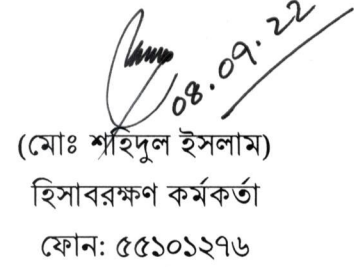 08.09.22
(মোঃ শহিদুল ইসলাম)
হিসাবরক্ষণ কর্মকর্তা
ফোন: ৫৫১০১২৭৬